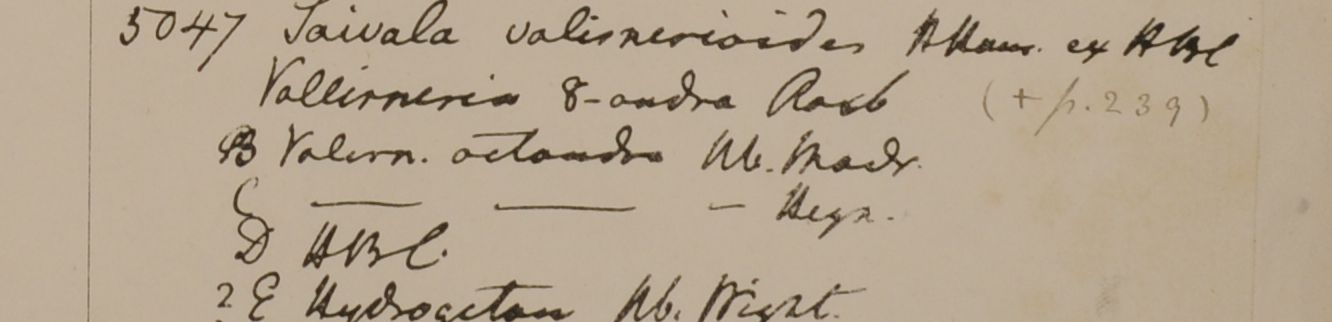 5047 Saivala valisnerioides HHam. ex HBC
Vallisneria 8-andra Roxb (+ p. 239)
B Valisn. octandra Hb. Madr.
C — — — Heyn.
D HBC.
2 E Hydrogeton Hb. Wight.